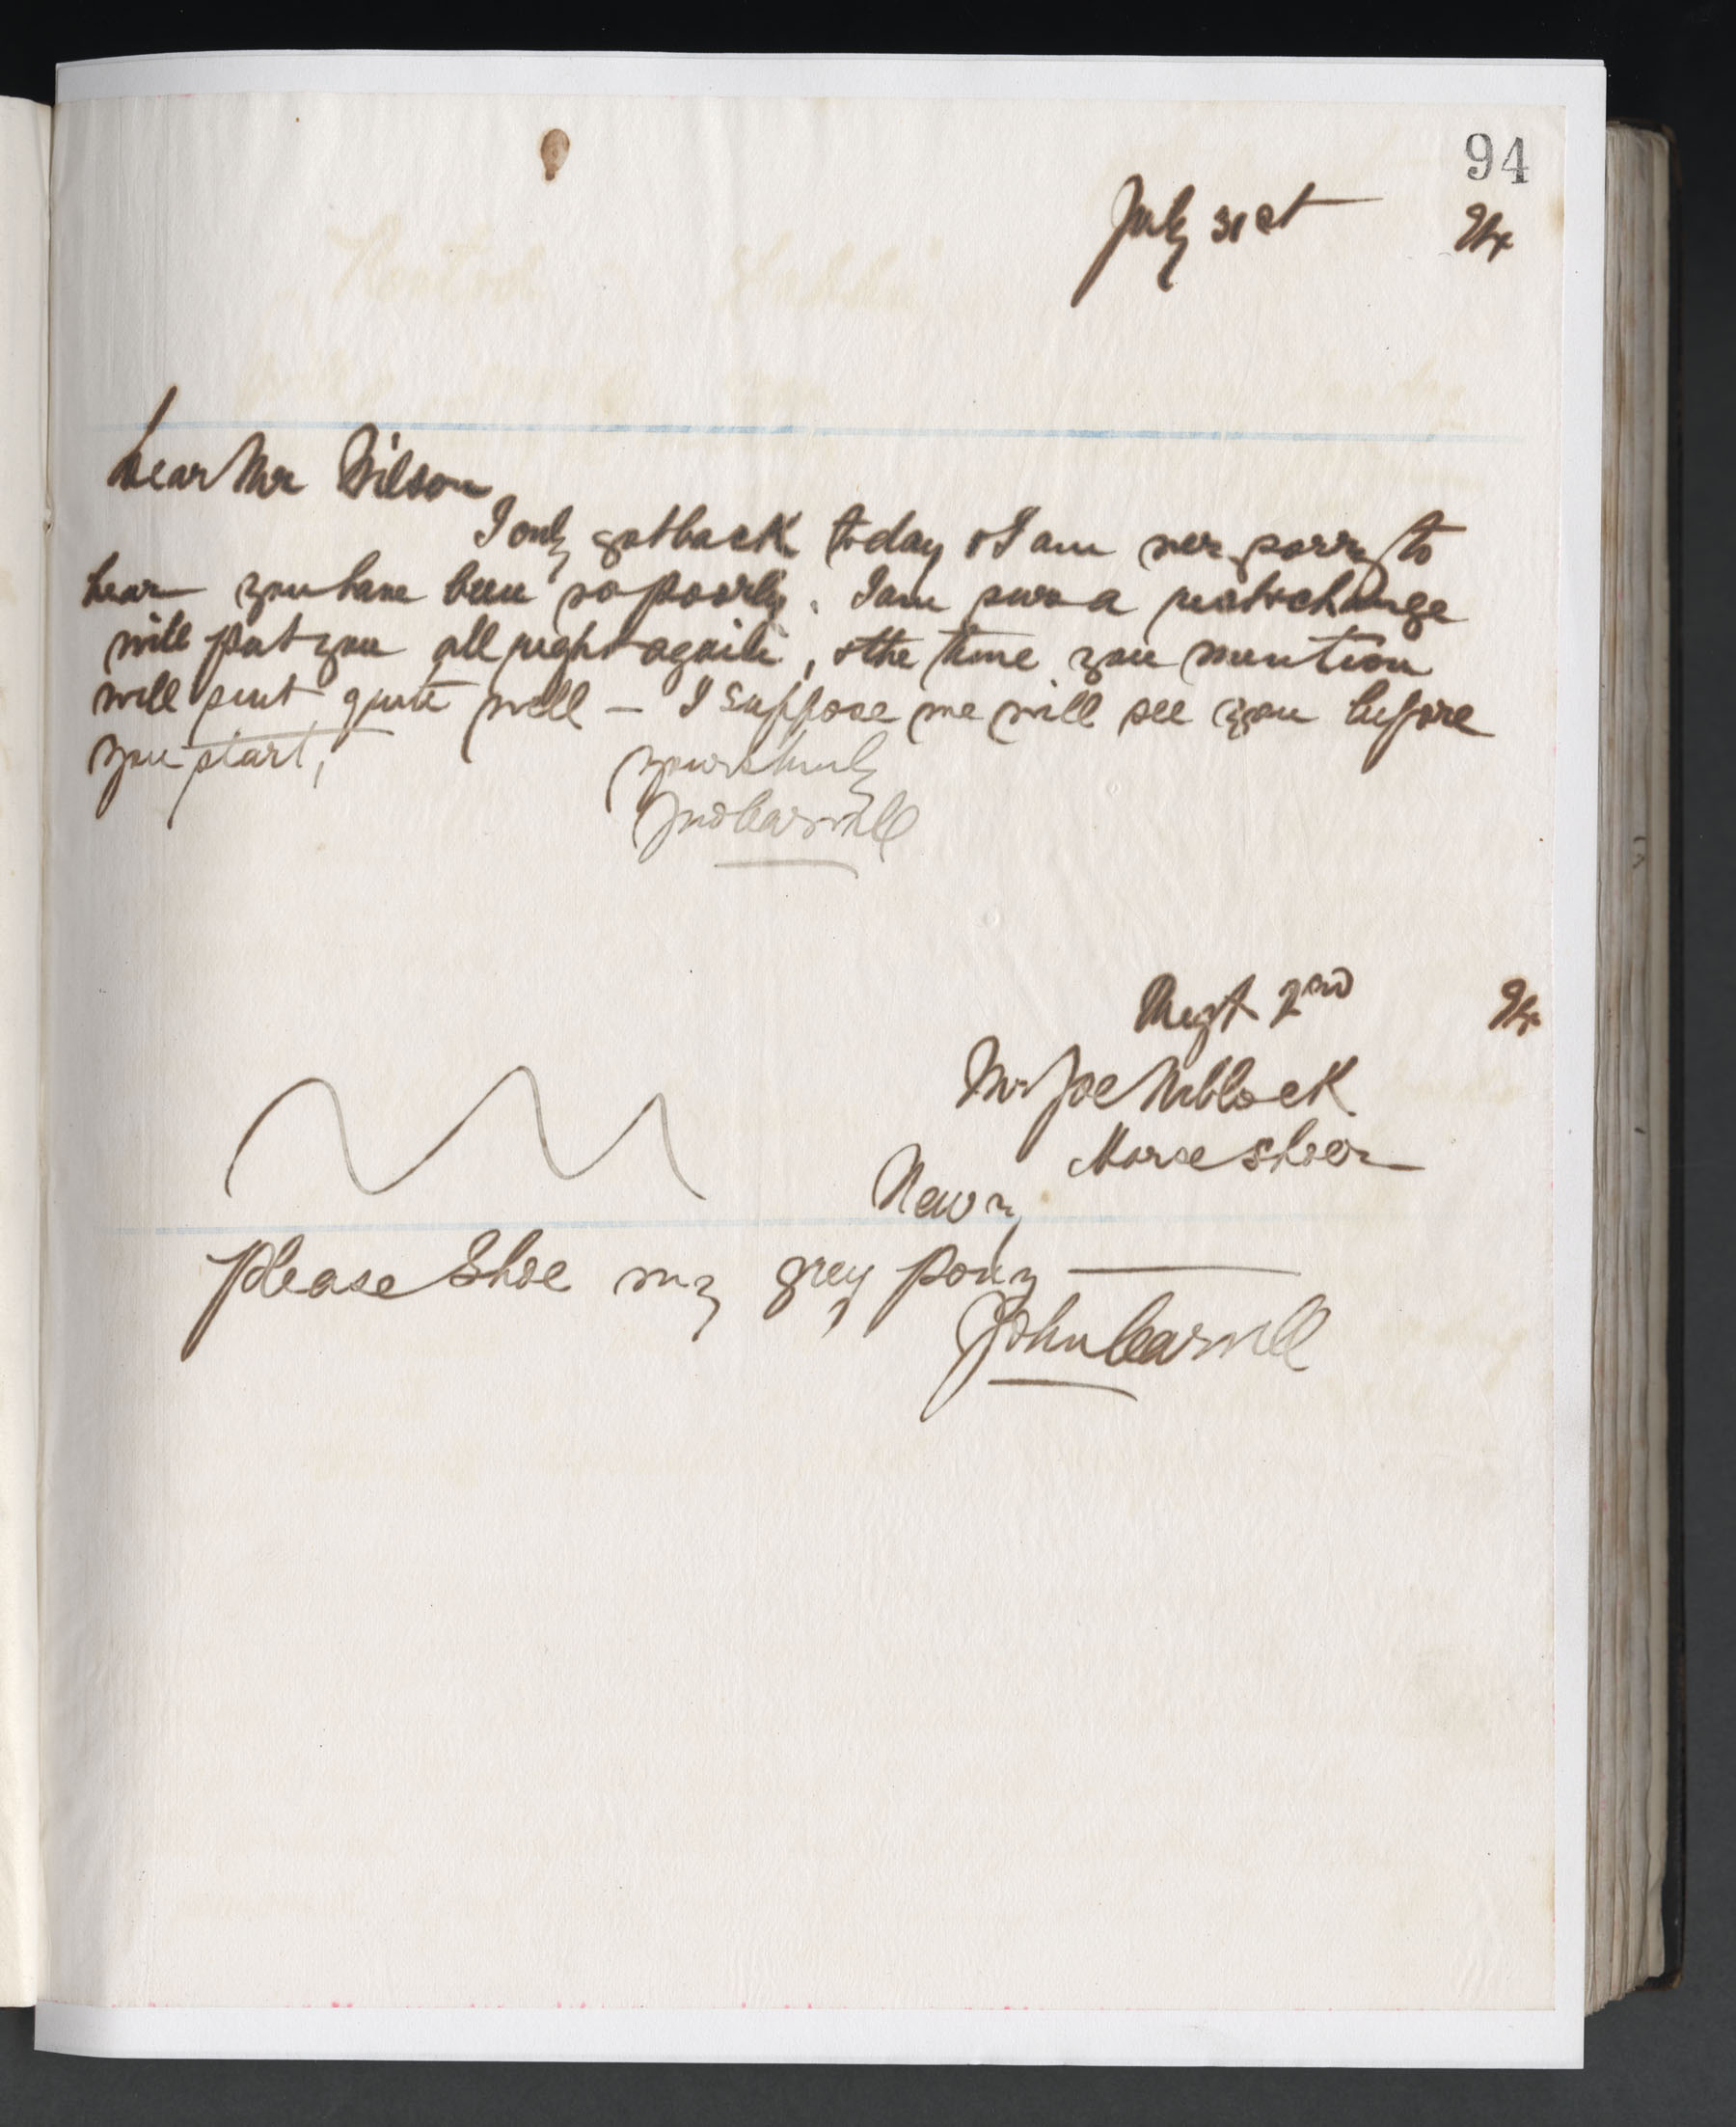 94
July 31st 94
Dear Mr Wilson
I only got back today & I am very sorry to
hear you have been so poorly. I am sure a rest & change
will put you all right again, & the time you mention
will suit quite well — I suppose we will see you before
you start,
yours truly
Jno Carvill
Augt 2nd 94
Mr Joe Niblock
Horse Shoer
Newry
Please Shoe my grey pony
John Carvill